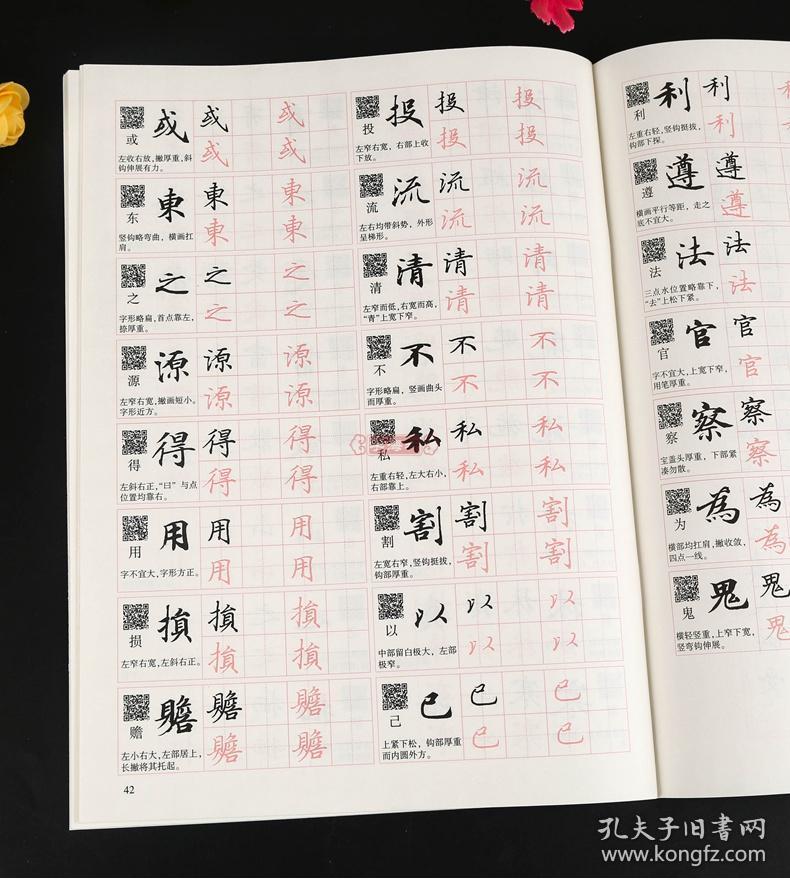 或 或 或 或
或 或
左收右放，撇厚重，斜
钩伸展有力。
东 東 東 東
東 東
竖钩略弯曲，横画扛
肩。
之 之 之 之
之 之
字形略扁，首点靠左，
捺厚重。
源 源 源 源
源 源
左窄右宽，撇画短小。
字形近方。
得 得 得 得
得 得
左斜右正，“曰”与点
位置均靠右。
用 用 用 用
用 用
字不宜大，字形方正。
损 損 損 損
損 損
左窄右宽，左斜右正。
赡 贍 贍 贍
贍 贍
左小右大，左部居上，
长撇将其托起。
42
投 投 投 投
投 投
左窄右宽，右部上收
下放。
流 流 流 流
流 流
左右均带斜势，外形
呈梯形。
清 清 清 清
清 清
左窄而低，右宽而高，
“青”上宽下窄。
不 不 不 不
不 不
字形略扁，竖画曲头
而厚重。
私 私 私 私
私 私
左重右轻，左大右小，
右部靠上。
割 割 割 割
割 割
左宽右窄，竖钩挺拔，
钩部厚重。
以 以 以 以
以 以
中部留白极大，左部
极窄。
己 己 己 己
己 己
上紧下松，钩部厚重
而内圆外方。
利 利 利
利
左重右轻，竖钩挺拔，
钩部下探。
遵 遵 遵
遵
横画平行等距，走之
底不宜大。
法 法 法
法
三点水位置略靠下，
“去”上松下紧。
官 官 官
官
字不宜大，上宽下窄，
用笔厚重。
察 察 察
察
宝盖头厚重，下部紧
凑勿散。
为 為 為
為
横部均扛肩，撇收敛，
四点一线。
鬼 鬼 鬼
鬼
横轻竖重，上窄下宽，
竖弯钩伸展。
孔夫子旧书网
www.kongfz.com